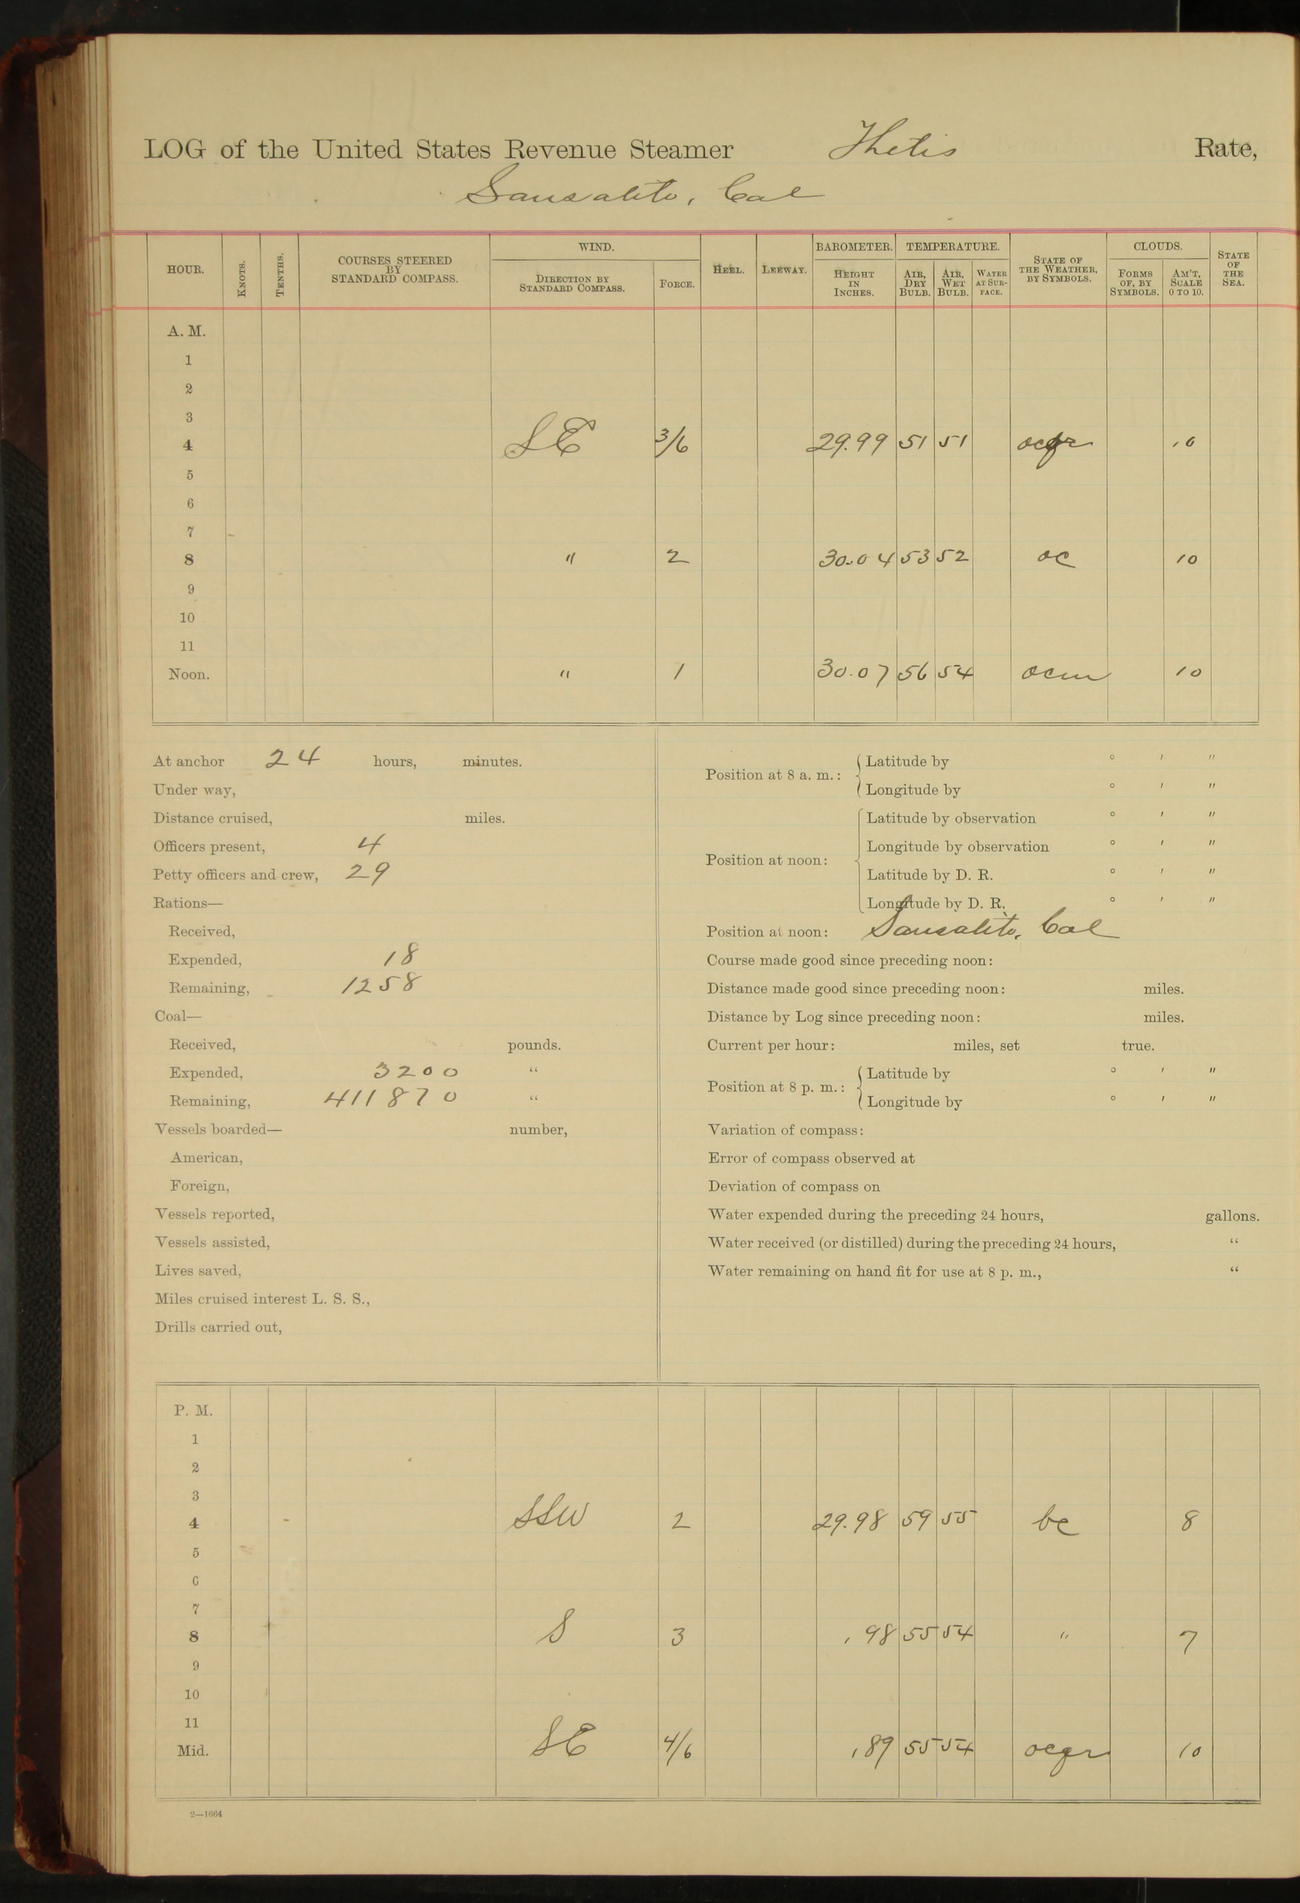 LOG of the United States Revenue Steamer Thetis Rate,
Sausalito, Cal
HOUR. KNOTS. TENTHS. COURSES STEERED BY STANDARD COMPASS. WIND. DIRECTION BY STANDARD COMPASS. FORCE. HEEL. LEEWAY. BAROMETER. HEIGHT IN INCHES. TEMPERATURE. AIR, DRY BULB. AIR, WET BULB. WATER AT SURFACE. STATE OF THE WEATHER, BY SYMBOLS. CLOUDS. FORMS OF, BY SYMBOLS. AM'T, SCALE 0 TO 10. STATE OF THE SEA.
A. M.
1
2
3
4 SE 3/6 29.99 51 51 ocqr 10
5
6
7
8 " 2 30.04 53 52 oc 10
9
10
11
Noon. " 1 30.07 56 54 ocm 10
At anchor 24 hours, minutes.
Under way,
Distance cruised, miles.
Officers present, 4
Petty officers and crew, 29
Rations—
Received,
Expended, 18
Remaining, 1258
Coal—
Received, pounds.
Expended, 3200 "
Remaining, 411870 "
Vessels boarded— number,
American,
Foreign,
Vessels reported,
Vessels assisted,
Lives saved,
Miles cruised interest L. S. S.,
Drills carried out,
Position at 8 a. m.: Latitude by ° ' "
Longitude by ° ' "
Position at noon: Latitude by observation ° ' "
Longitude by observation ° ' "
Latitude by D. R. ° ' "
Longitude by D. R. ° ' "
Position at noon: Sausalito, Cal
Course made good since preceding noon:
Distance made good since preceding noon: miles.
Distance by Log since preceding noon: miles.
Current per hour: miles, set true.
Position at 8 p. m.: Latitude by ° ' "
Longitude by ° ' "
Variation of compass:
Error of compass observed at
Deviation of compass on
Water expended during the preceding 24 hours, gallons.
Water received (or distilled) during the preceding 24 hours, "
Water remaining on hand fit for use at 8 p. m., "
P. M.
1
2
3
4 SSW 2 29.98 59 55 bc 8
5
6
7
8 S 3 .98 55 54 " 7
9
10
11
Mid. SE 4/6 .89 55 54 ocqr 10
2—1664